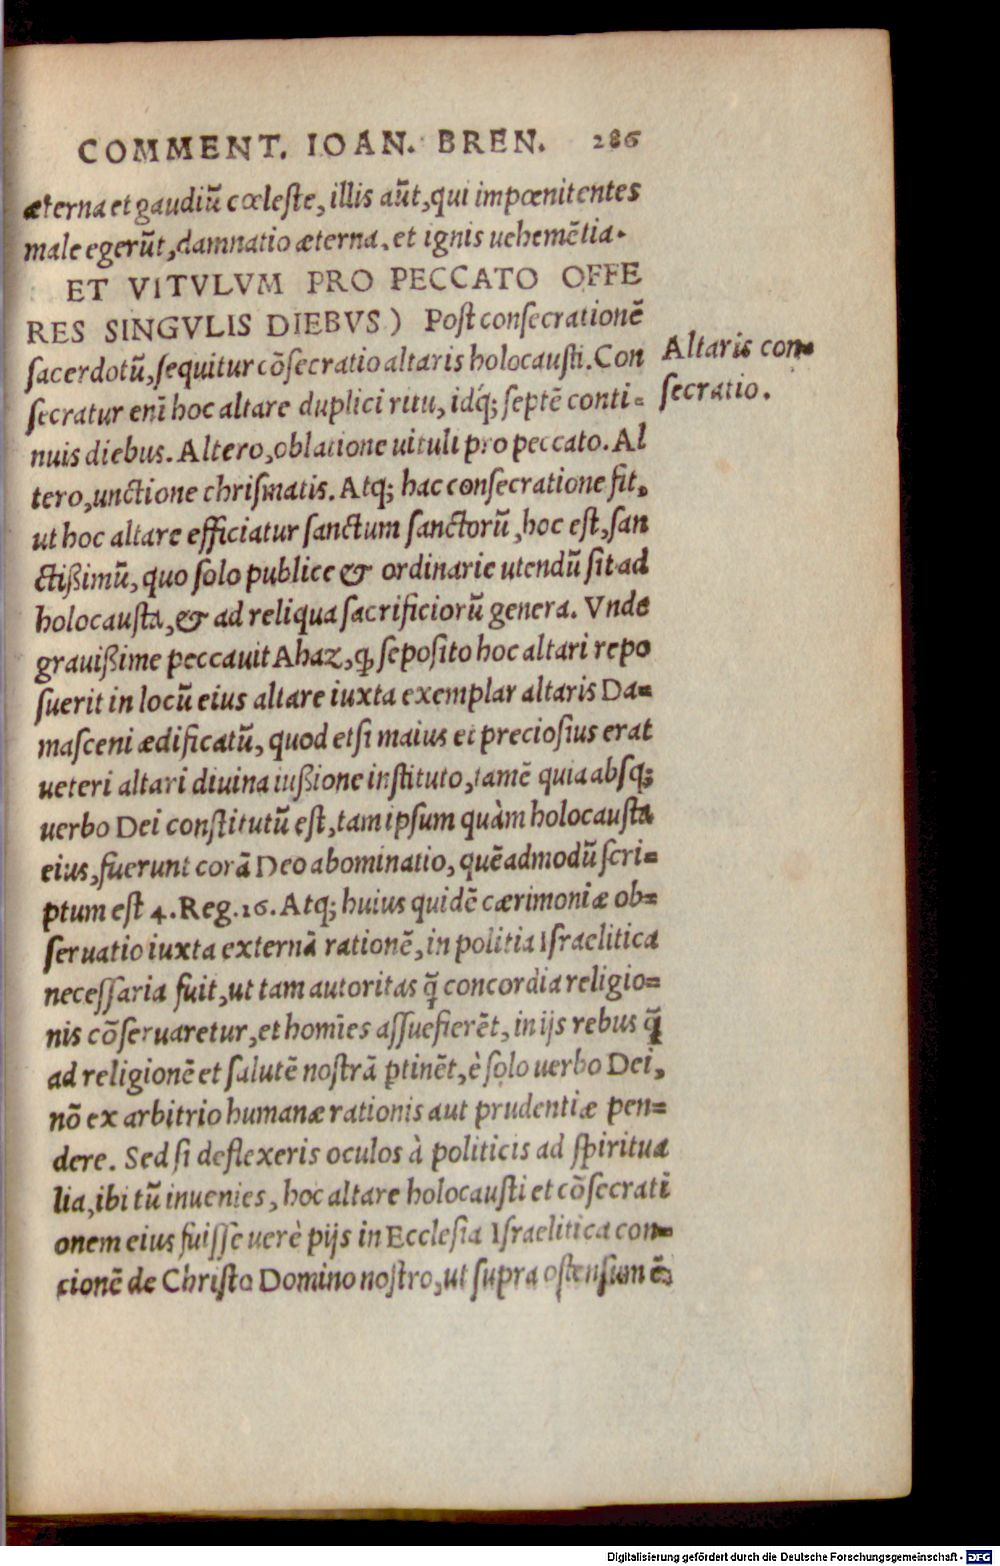 COMMENT. IOAN. BREN. 286
æterna et gaudiũ cœleste, illis aũt, qui impœnitentes
male egerũt, damnatio æterna, et ignis uehemẽtia.
ET VITVLVM PRO PECCATO OFFE
RES SINGVLIS DIEBVS) Post consecrationẽ
sacerdotũ, sequitur cõsecratio altaris holocausti. Con
secratur enĩ hoc altare duplici ritu, idq́; septẽ conti-
nuis diebus. Altero, oblatione uituli pro peccato. Al
tero, unctione chrismatis. Atq; hac consecratione fit,
ut hoc altare efficiatur sanctum sanctorũ, hoc est, san
ctißimũ, quo solo publice & ordinarie utendũ sit ad
holocausta, & ad reliqua sacrificiorũ genera. Vnde
grauißime peccauit Ahaz, ꝙ seposito hoc altari repo
suerit in locũ eius altare iuxta exemplar altaris Da-
masceni ædificatũ, quod etsi maius et preciosius erat
ueteri altari diuina iußione instituto, tamẽ quia absq;
uerbo Dei constitutũ est, tam ipsum quàm holocausta
eius, fuerunt corã Deo abominatio, quẽadmodũ scri-
ptum est 4. Reg. 16. Atq; huius quidẽ cærimoniæ ob-
seruatio iuxta externã rationẽ, in politia Israelitica
necessaria fuit, ut tam autoritas q̃ concordia religio-
nis cõseruaretur, et homĩes assuefierẽt, in ijs rebus q̃
ad religionẽ et salutẽ nostrã ꝑtinẽt, è solo uerbo Dei,
nõ ex arbitrio humanæ rationis aut prudentiæ pen-
dere. Sed si deflexeris oculos à politicis ad spiritua
lia, ibi tũ inuenies, hoc altare holocausti et cõsecrati
onem eius fuisse uerè pijs in Ecclesia Israelitica con-
cionẽ de Christo Domino nostro, ut supra ostensum ẽ.
Altaris con-
secratio.
Digitalisierung gefördert durch die Deutsche Forschungsgemeinschaft - DFG